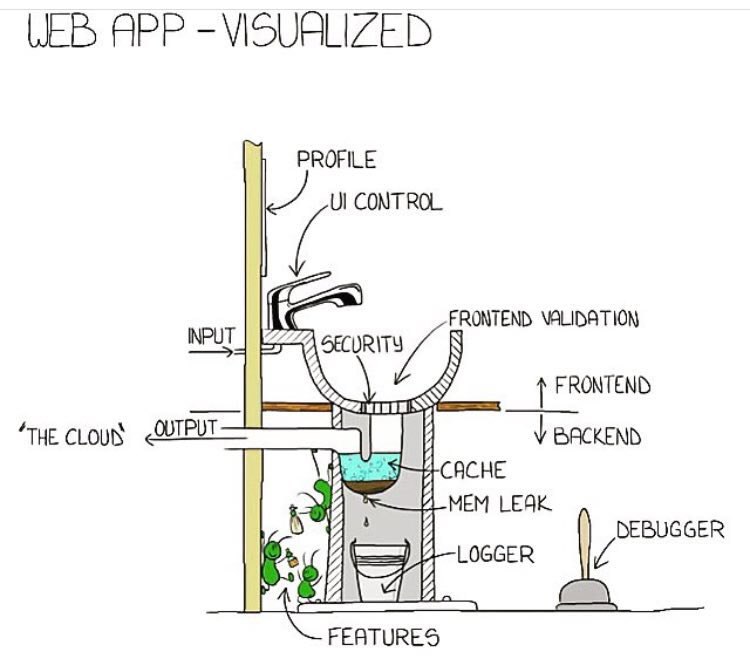 WEB APP - VISUALIZED
PROFILE
UI CONTROL
FRONTEND VALIDATION
INPUT
SECURITY
FRONTEND
"THE CLOUD"
OUTPUT
BACKEND
CACHE
MEM LEAK
DEBUGGER
LOGGER
FEATURES